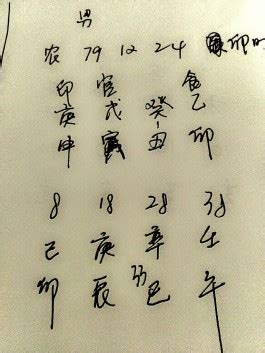 男
农 79 12 24 卯时
印 官 食
庚 戊 癸 乙
申 寅 丑 卯
8 18 28 38
己 庚 辛 壬
卯 辰 33 巳 午